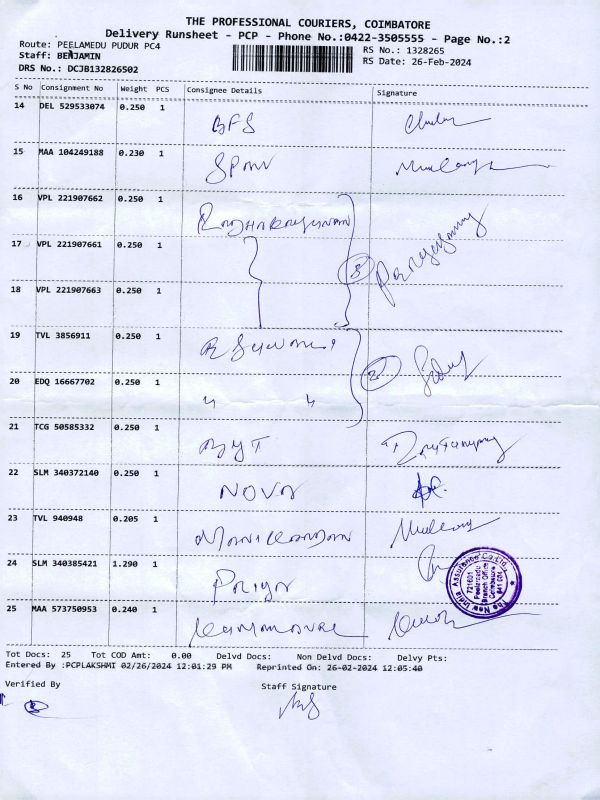 THE PROFESSIONAL COURIERS, COIMBATORE
Delivery Runsheet - PCP - Phone No.:0422-3505555 - Page No.:2
Route: PEELAMEDU PUDUR PC4
RS No.: 1328265
Staff: BENJAMIN
RS Date: 26-Feb-2024
DRS No.: DCJB132826502
S No Consignment No Weight PCS Consignee Details Signature
14 DEL 529533074 0.250 1 BFS
15 MAA 104249188 0.230 1 SPAN
16 VPL 221907662 0.250 1
17 VPL 221907661 0.250 1
3
18 VPL 221907663 0.250 1
19 TVL 3856911 0.250 1
20 EDQ 16667702 0.250 1 " " 2
21 TCG 50585332 0.250 1
22 SLM 340372140 0.250 1 NOVA
23 TVL 940948 0.205 1
24 SLM 340385421 1.290 1 PRIYA
The New India Assurance Co. Ltd.
721601
Peelamedu
Branch Office
Coimbatore
641 004
25 MAA 573750953 0.240 1
Tot Docs: 25 Tot COD Amt: 0.00 Delvd Docs: Non Delvd Docs: Delvy Pts:
Entered By :PCPLAKSHMI 02/26/2024 12:01:29 PM Reprinted On: 26-02-2024 12:05:40
Verified By Staff Signature